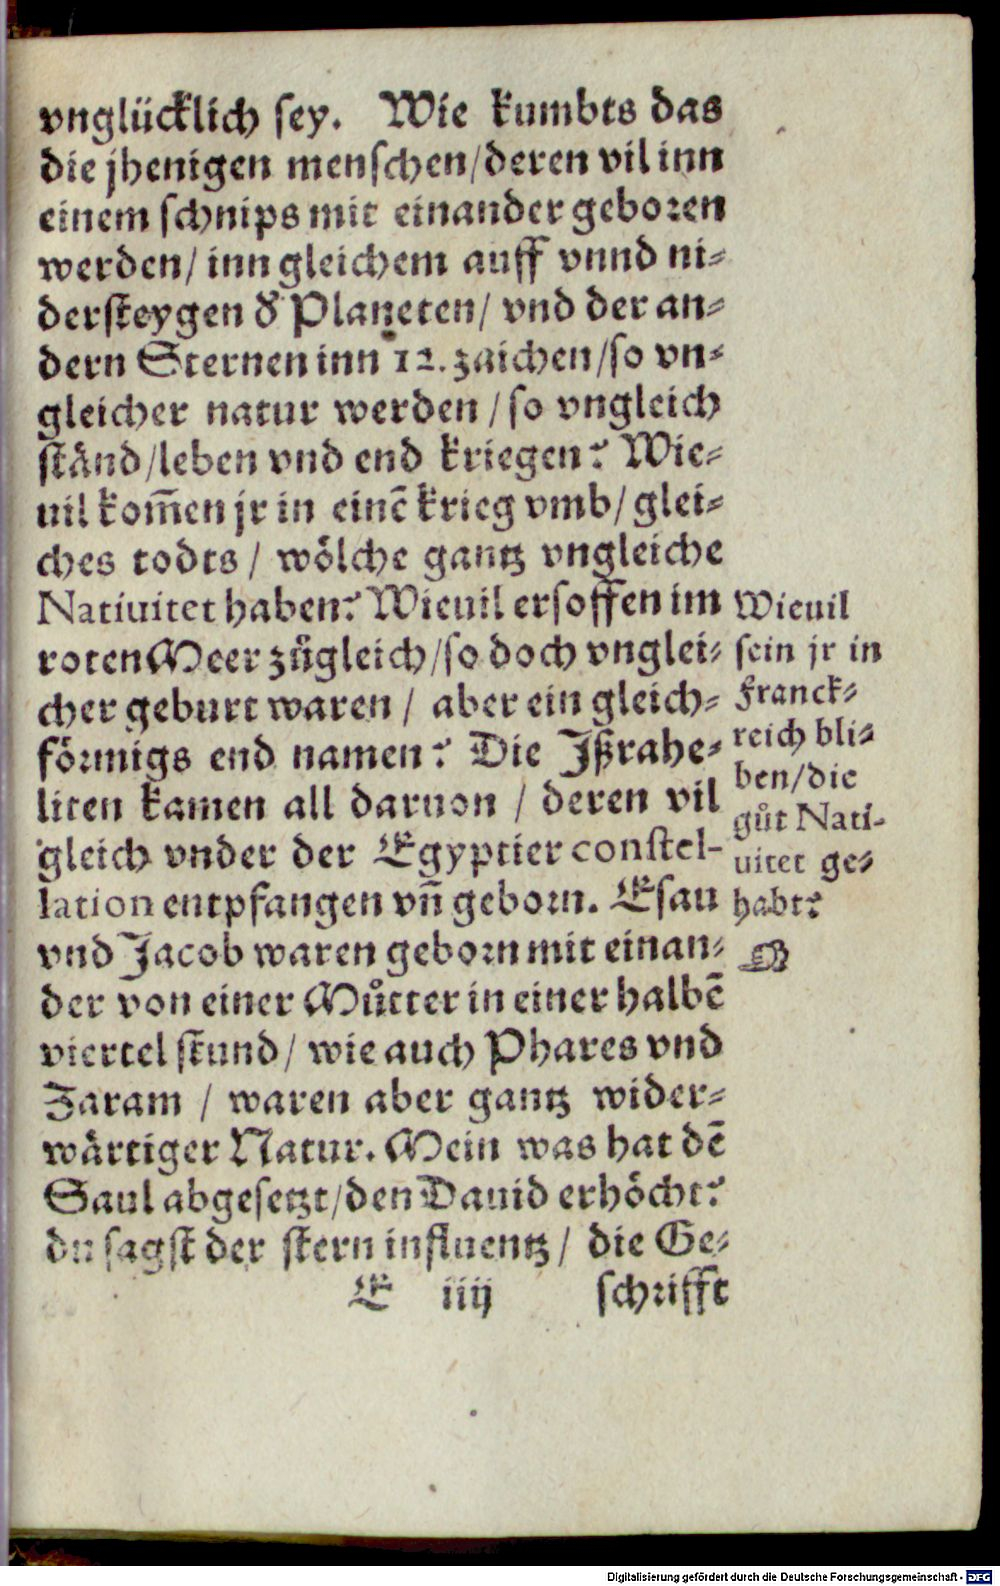 vnglücklich sey. Wie kumbts das
die jhenigen menschen/deren vil inn
einem schnips mit einander geboren
werden/ inn gleichem auff vnnd ni⸗
dersteygen d' Planeten/ vnd der an⸗
dern Sternen inn 12. zaichen/so vn⸗
gleicher natur werden/so vngleich
ständ/leben vnd end kriegen? Wie⸗
uil kom̃en jr in einē krieg vmb/ glei⸗
ches todts/ wölche gantz vngleiche
Natiuitet haben? Wieuil ersoffen im
roten Meer zůgleich/so doch vnglei⸗
cher geburt waren/ aber ein gleich⸗
förmigs end namen? Die Jßrahe⸗
liten kamen all daruon/ deren vil
gleich vnder der Egyptier constel-
lation entpfangen vñ geborn. Esau
vnd Jacob waren geborn mit einan⸗
der von einer Můtter in einer halbē
viertel stund/ wie auch Phares vnd
Zaram/ waren aber gantz wider⸗
wärtiger Natur. Mein was hat dē
Saul abgesetzt/den Dauid erhöcht?
du sagst der stern influentz/ die Ge⸗
E iiij schrifft
Wieuil
sein jr in
Franck⸗
reich bli⸗
ben/die
gůt Nati-
uitet ge⸗
habt?
Digitalisierung gefördert durch die Deutsche Forschungsgemeinschaft - DFG